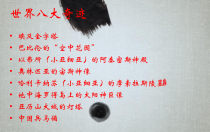 世界八大奇迹
• 埃及金字塔
• 巴比伦的“空中花园”
• 以弗所（小亚细亚）的阿泰密斯神殿
• 奥林匹亚的宙斯神像
• 哈利卡纳苏（小亚细亚）的摩索拉斯陵墓
• 地中海罗得岛上的太阳神巨像
• 亚历山大城的灯塔
• 中国兵马俑